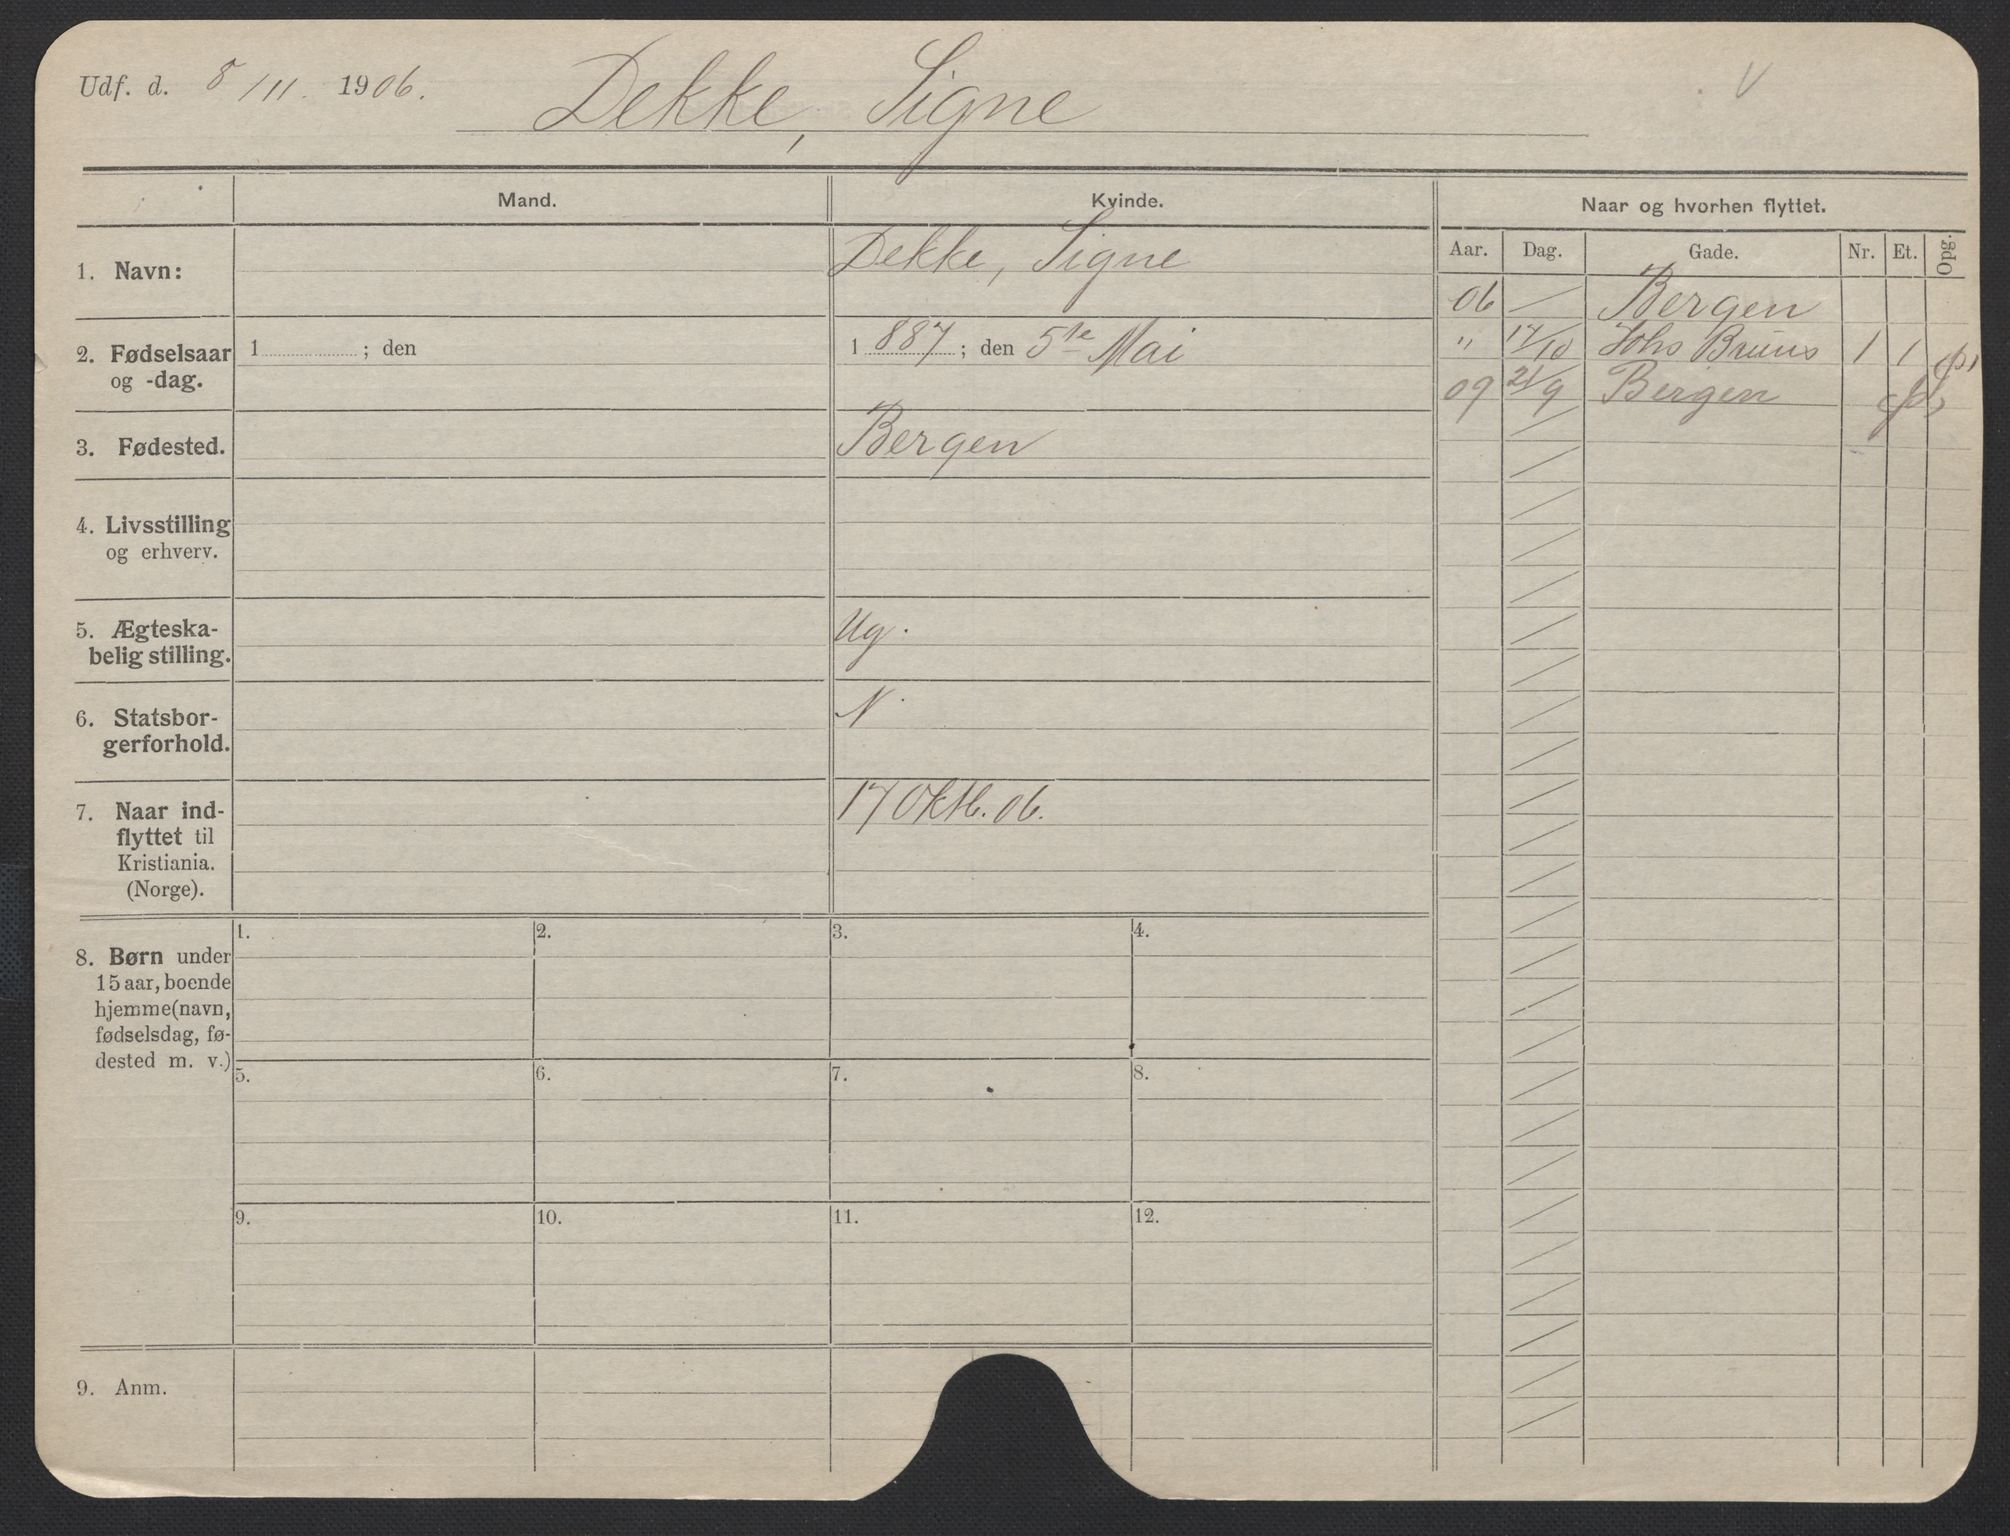 Udf. d. 8/11. 1906.
Dekke, Signe
Mand.
Kvinde.
Naar og hvorhen flyttet.
Aar. Dag. Gade. Nr. Et. Opg.
1. Navn:
Dekke, Signe
06 Bergen
" 17/10 Johs Bruns 1 1
09 21/9 Bergen
2. Fødselsaar
og -dag.
1 ; den
1 887 ; den 5te Mai
3. Fødested.
Bergen
4. Livsstilling
og erhverv.
5. Ægteska-
belig stilling.
Ug.
6. Statsbor-
gerforhold.
N.
7. Naar ind-
flyttet til
Kristiania.
(Norge).
17 Oktb. 06.
8. Børn under
15 aar, boende
hjemme (navn,
fødselsdag, fø-
dested m. v.)
1. 2. 3. 4.
5. 6. 7. 8.
9. 10. 11. 12.
9. Anm.